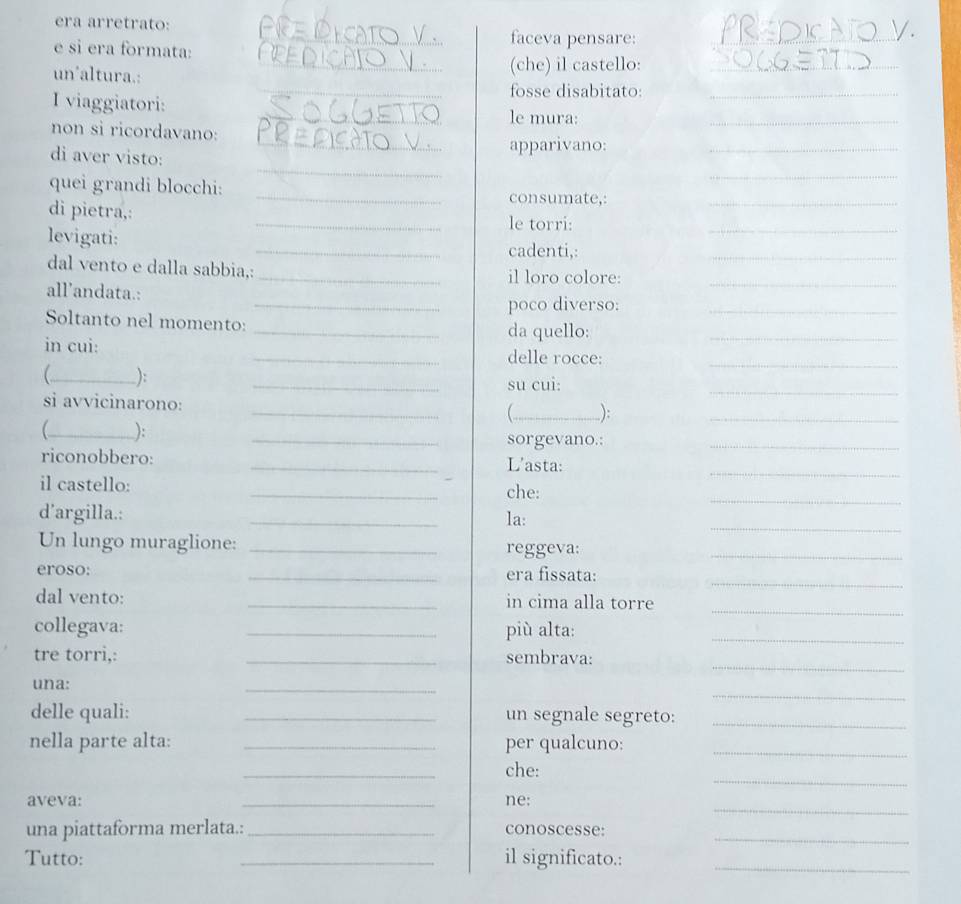 era arretrato: PREDICATO V.
e si era formata: PREDICATO V.
un'altura.:
I viaggiatori: SOGGETTO
non si ricordavano: PREDICATO V.
di aver visto:
quei grandi blocchi:
di pietra,:
levigati:
dal vento e dalla sabbia,:
all'andata.:
Soltanto nel momento:
in cui:
(__________):
si avvicinarono:
(__________):
riconobbero:
il castello:
d'argilla.:
Un lungo muraglione:
eroso:
dal vento:
collegava:
tre torri,:
una:
delle quali:
nella parte alta:
aveva:
una piattaforma merlata.:
Tutto:
faceva pensare: PREDICATO V.
(che) il castello: SOGGETTO
fosse disabitato:
le mura:
apparivano:
consumate,:
le torri:
cadenti,:
il loro colore:
poco diverso:
da quello:
delle rocce:
su cui:
(__________):
sorgevano.:
L'asta:
che:
la:
reggeva:
era fissata:
in cima alla torre
più alta:
sembrava:
un segnale segreto:
per qualcuno:
che:
ne:
conoscesse:
il significato.: